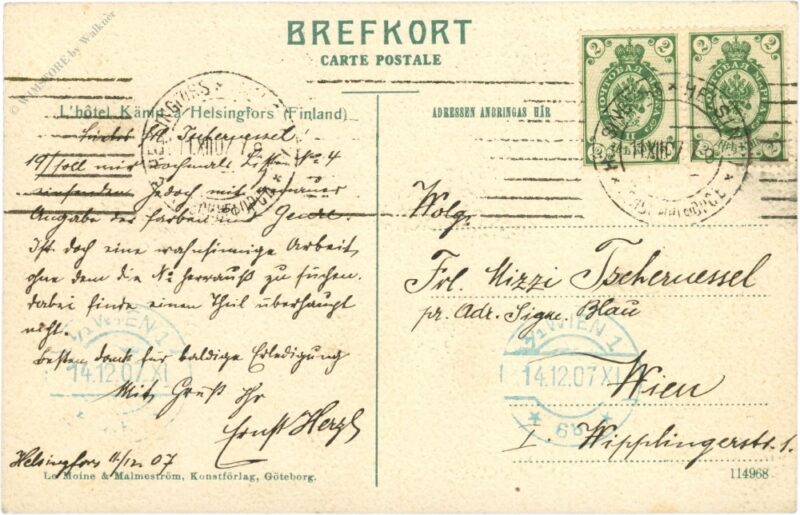 © WIMSTORE by Walkner
BREFKORT
CARTE POSTALE
L'hôtel Kämp à Helsingfors (Finland)
ADRESSEN ANBRINGAS HÄR
HELSINGFORS
11 XII 07
HELSINGFORS
11 XII 07
2
2
2
2
Liebes Frl. Tschernessel!
mir nochmals Liste No 4
einsenden. Jedoch mit genauer
Angabe der Farben und Genre.
Ist doch eine wahnsinnige Arbeit,
ohne dem die No herrauß zu suchen.
dabei finde einen Theil überhaupt
nicht.
Besten Dank für baldige Erledigung
Mit Gruß Ihr
Ernst Herzl
Helsingfors 11/12 07
Wolg.
Frl. Mizzi Tschernessel
pr. Adr. Sigm. Blau
Wien
I. Wipplingerstr. 1.
1/1 WIEN 1
14.12.07.XI
1/1 WIEN 1
14.12.07.XI
Le Moine & Malmeström, Konstförlag, Göteborg.
114968